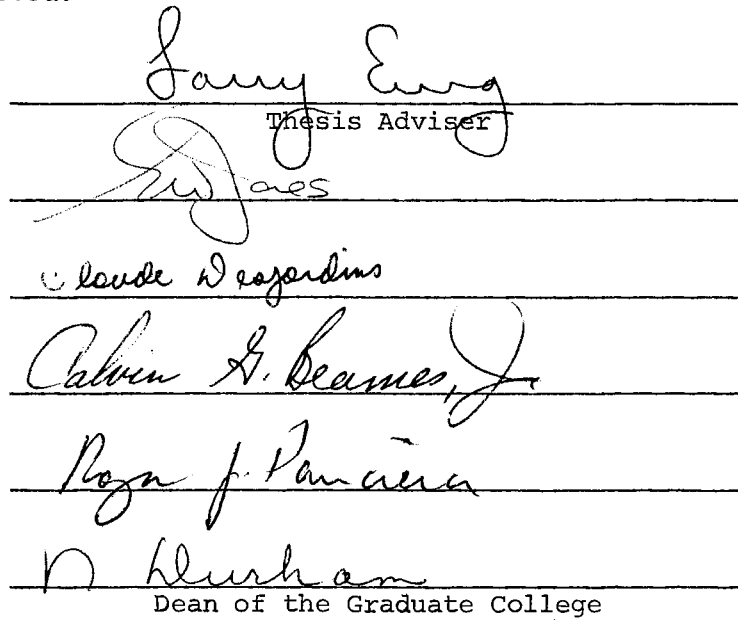 Larry Ewing
Thesis Adviser
Jones
Claude Desjardins
Calvin G. Beames, Jr.
Roger J. Panciera
N Durham
Dean of the Graduate College